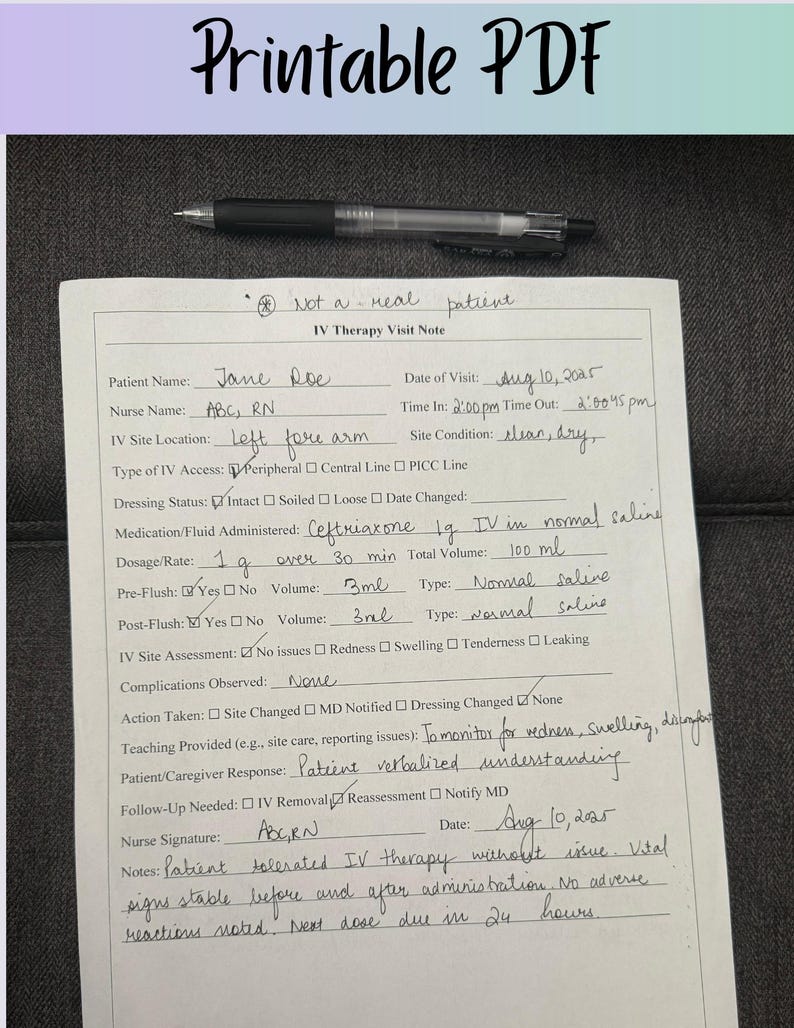 Printable PDF
⊛ Not a real patient
IV Therapy Visit Note
Patient Name: Jane Doe Date of Visit: Aug 10, 2025
Nurse Name: ABC, RN Time In: 2:00pm Time Out: 2:45 pm
IV Site Location: Left fore arm Site Condition: clean, dry,
Type of IV Access: ☑ Peripheral ☐ Central Line ☐ PICC Line
Dressing Status: ☑ Intact ☐ Soiled ☐ Loose ☐ Date Changed:
Medication/Fluid Administered: Ceftriaxone 1g IV in normal saline
Dosage/Rate: 1 g over 30 min Total Volume: 100 ml
Pre-Flush: ☑ Yes ☐ No Volume: 3ml Type: Normal saline
Post-Flush: ☑ Yes ☐ No Volume: 3ml Type: Normal saline
IV Site Assessment: ☑ No issues ☐ Redness ☐ Swelling ☐ Tenderness ☐ Leaking
Complications Observed: None
Action Taken: ☐ Site Changed ☐ MD Notified ☐ Dressing Changed ☑ None
Teaching Provided (e.g., site care, reporting issues): To monitor for redness, swelling, discomfort
Patient/Caregiver Response: Patient verbalized understanding
Follow-Up Needed: ☐ IV Removal ☑ Reassessment ☐ Notify MD
Nurse Signature: ABC,RN Date: Aug 10, 2025
Notes: Patient tolerated IV therapy without issue. Vital
signs stable before and after administration. No adverse
reactions noted. Next dose due in 24 hours.